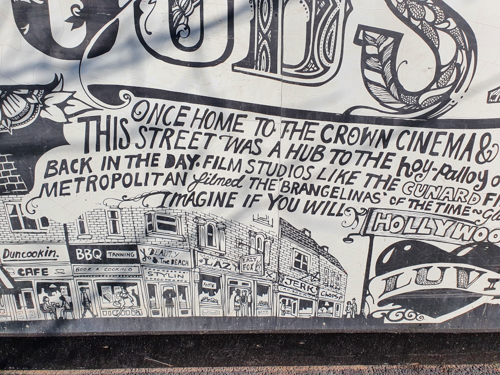 ODDS
ONCE HOME TO THE CROWN CINEMA &
THIS STREET WAS A HUB TO THE hoy-palloy
BACK IN THE DAY. FILM STUDIOS LIKE THE CUNARD
METROPOLITAN filmed THE BRANGELINAS' OF THE TIME-
IMAGINE IF YOU WILL
HOLLYWOO
LUVI
Duncookin.
CAFE
BBQ TANNING
THE BEACH
LAZY
JERK